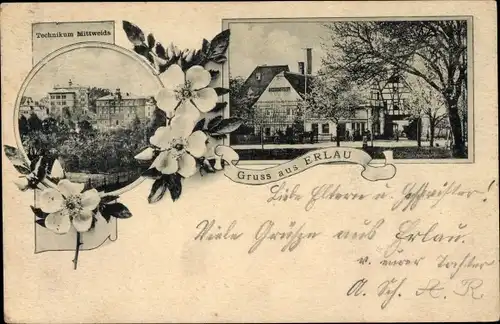 Technikum Mittweida
Gruss aus ERLAU
Liebe Eltern u. Geschwister!
Viele Grüße aus Erlau.
v. eurer Tochter
A. Sch. A. R